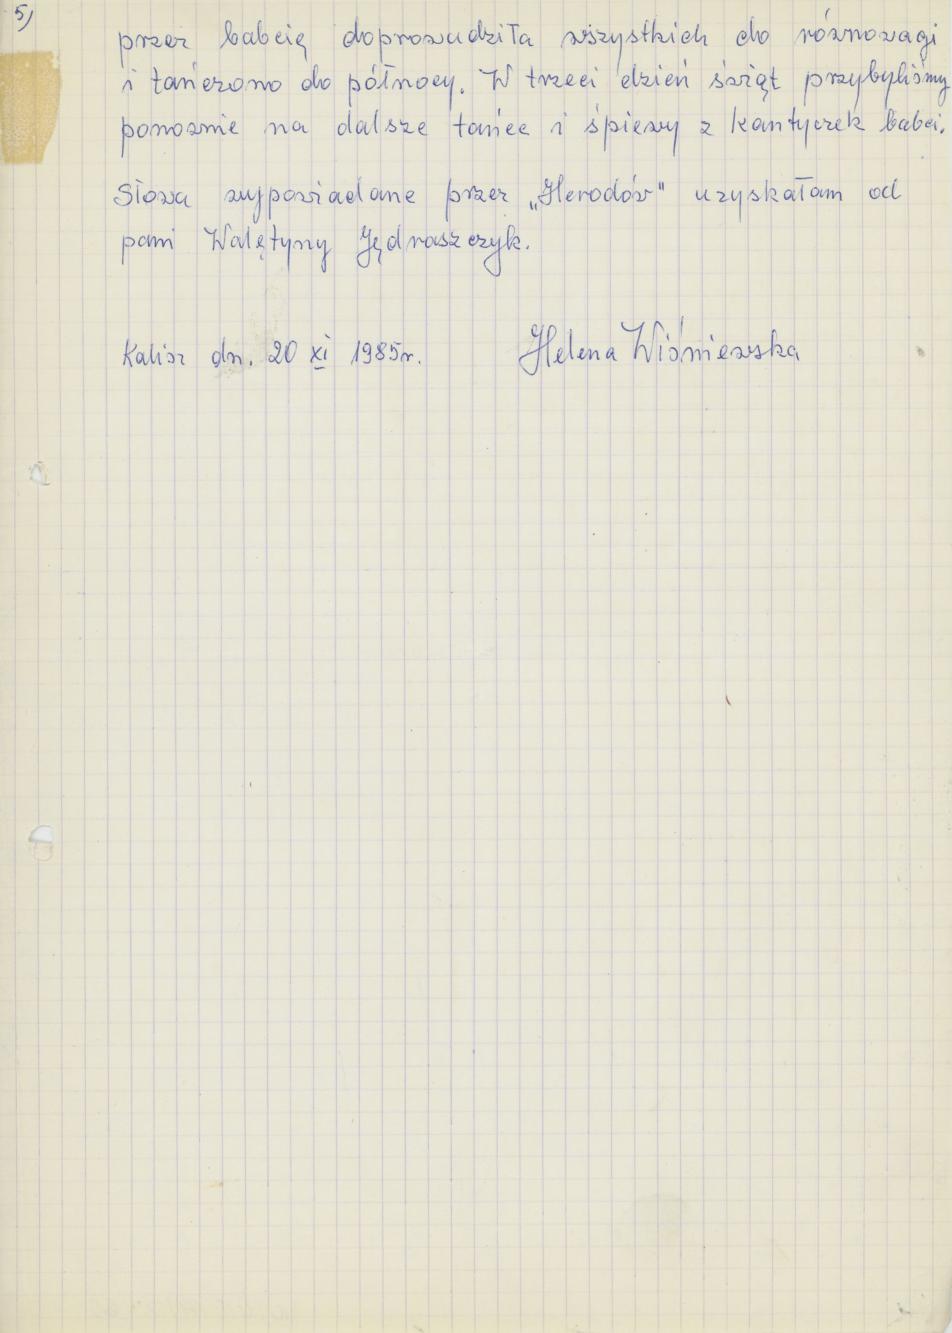 5)
przez babcię doprowadziła wszystkich do równowagi
i tańczono do północy. W trzeci dzień świąt przybyliśmy
ponownie na dalsze tańce i śpiewy z kantyczek babci.
Słowa wypowiadane przez „Herodów" uzyskałam od
pani Walętyny Jędraszczyk.
Kalisz dn. 20 XI 1985r. Helena Wiśniewska